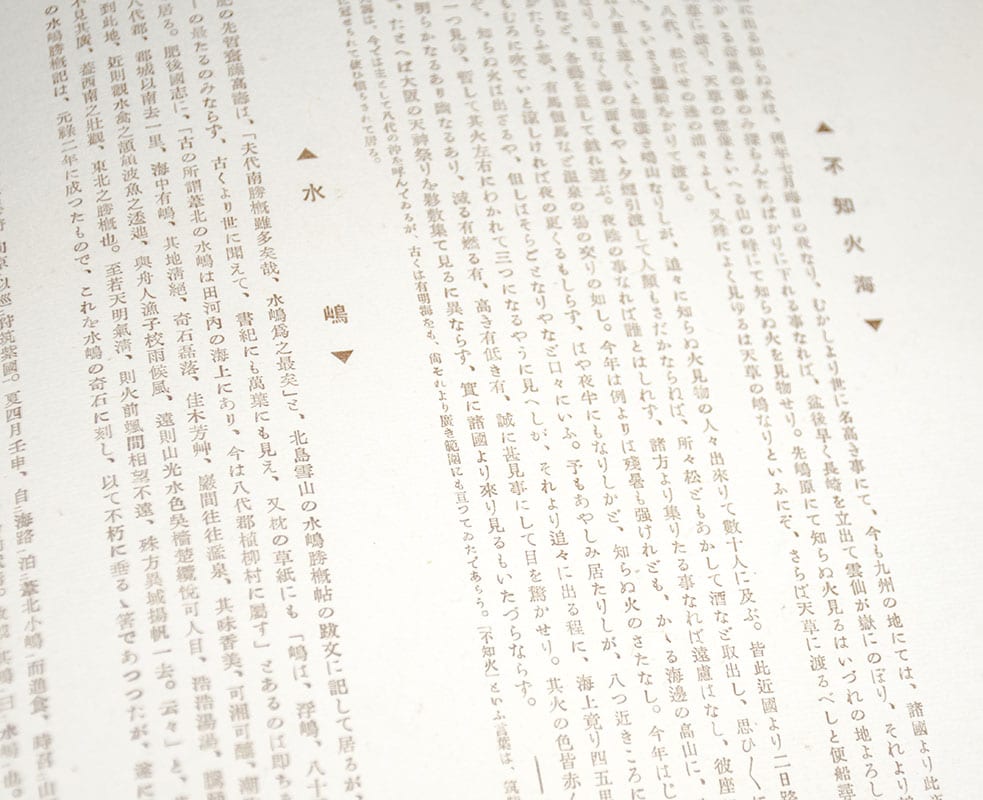 ▲不知火海▼
に出る知らぬ火は、例年七月晦日の夜なり、むかしより世に名高き事にて、今も九州の地にては、諸國より此
かゝる奇異の事のみ探もんためばかりに下れる事なれば、盆後早く長崎を立出て雲仙が嶽にのぼり、それより
草に渡り、天草の
といへる山の峰にて知らぬ火を見物せり。先嶋原にて知らぬ火見るはいづれの地よろし
八代、松ばせの邊の浦々よし、又殊によく見ゆるは天草の嶋なりといふにぞ、さらば天草に渡るべしと便船
ちいさき
をかりて渡る。
人里も遠くいと物凄き嶋山なりしが、追々に知らぬ火見物の人々出來りて數十人に及ぶ。皆此近國より二日路
なり。程なく海の面もやゝ夕煙引渡して人顏もさだかならねば、所々松どもあかして酒など取出し、思ひ〳〵に
など、各藝を盡して戯れ遊ぶ。夜陰の事なれば誰とはしれず、諸方より集りたる事なれば遠慮はなし、彼座
かたらふ事、有馬但馬など温泉の場の交りの如し。今年は例よりは殘暑も强けれども、かゝる海邊の高山に、
もむろに吹ていと涼しければ夜の更くるもしらず、はや夜半にもなりしかど、知らぬ火のさたなし。今年はじ
ぞ、知らぬ火は出ざるや、但しはそらごとなりやなど口々にいふ。予もあやしみ居たりしが、八つ近きころに
一つ見ゆ、暫して其火左右にわかれて三つになるやうに見へしが、それより追々に出る程に、海上竟り四五里
明らかなるあり幽なるあり、滅る有燃る有、高き有低き有、誠に甚見事にして目を驚かせり。其火の色皆赤く
、たとへば大阪の天神祭りを
數集て見るに異ならず、實に諸國より來り見るもいたづらならず。
海は、今では主として八代の沖を呼んでゐるが、古くは有明海をも、尙それより廣き範圍にも亘つてゐたであらう。「不知火」といふ言葉は、筑
ぜられて使ひ慣らされて居る。
▲水嶋▼
肥の先哲齋藤高壽は、「夫代南勝概雖多矣哉、水嶋爲之最矣」と、北島雪山の水嶋勝概帖の跋文に記して居るが、
一の最たるのみならず、古くより世に聞えて、書紀にも萬葉にも見え、又枕の草紙にも「嶋は、浮嶋、八十
居る。肥後國志に、「古の所謂葦北の水嶋は田河内の海上にあり、今は八代郡植柳村に屬す」とあるのは即ち
八代郡、郡城以南去一里、海中有嶋、其地淸絕、奇石磊落、佳木芳艸、巖間往往濫泉、其味香美、可湘可釀、潮
到此地、近則觀水禽之頡頏波魚之送迎、與舟人漁子校雨候風、遠則山光水色吳檣楚纜悅可人目、浩浩湯湯、
不見其廣、蓋西南之壯觀、東北之勝槪也。至若天明氣淸、則火前颯間相望不遠、殊方異域揚帆一去。云々」と、
の水嶋勝槪記は、元祿二年に成つたもので、これを水嶋の奇石に刻し、以て不朽に垂るゝ筈であつたが、
以巡狩筑紫國。夏四月壬申、自海路泊葦北小嶋而進食、時召山